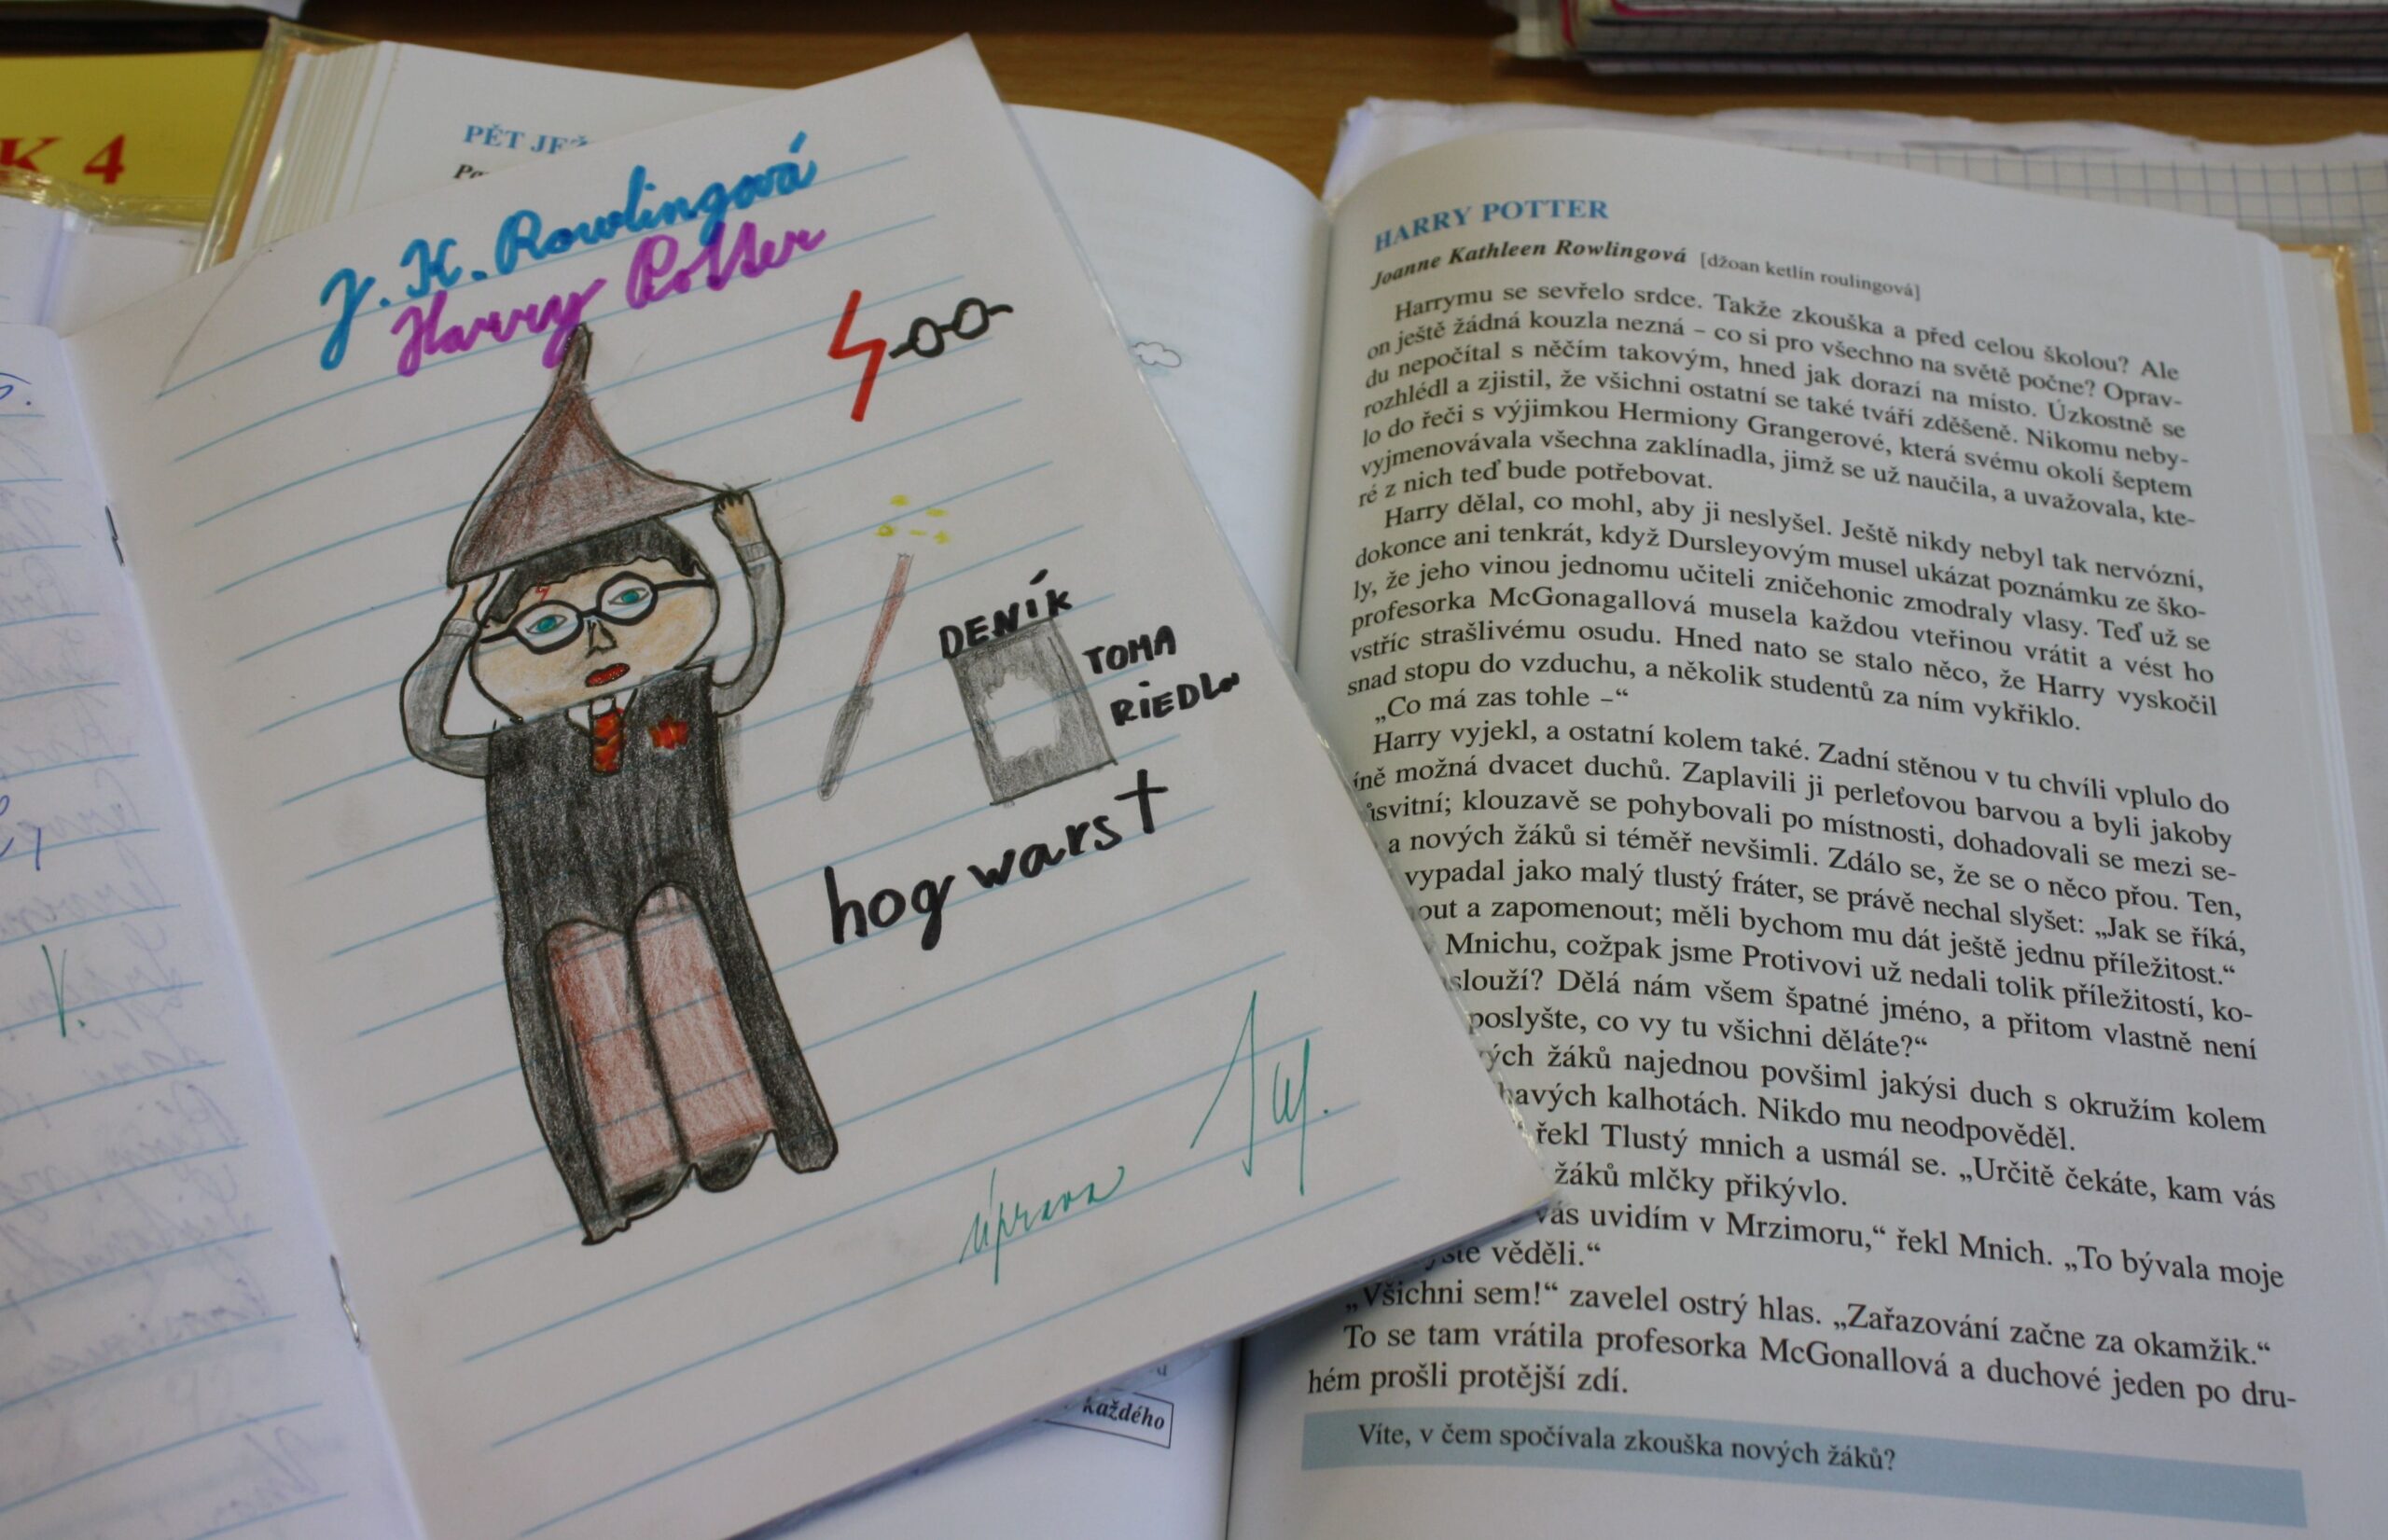 K 4
PĚT JEŽ
J. K. Rowlingová
Harry Potter
DENÍK
TOMA
RiEDLa
hogwarst
úprava
V.
každého
HARRY POTTER
Joanne Kathleen Rowlingová [džoan ketlín roulingová]
Harrymu se sevřelo srdce. Takže zkouška a před celou školou? Ale
on ještě žádná kouzla nezná – co si pro všechno na světě počne? Oprav-
du nepočítal s něčím takovým, hned jak dorazí na místo. Úzkostně se
rozhlédl a zjistil, že všichni ostatní se také tváří zděšeně. Nikomu neby-
lo do řeči s výjimkou Hermiony Grangerové, která svému okolí šeptem
vyjmenovávala všechna zaklínadla, jimž se už naučila, a uvažovala, kte-
ré z nich teď bude potřebovat.
Harry dělal, co mohl, aby ji neslyšel. Ještě nikdy nebyl tak nervózní,
dokonce ani tenkrát, když Dursleyovým musel ukázat poznámku ze ško-
ly, že jeho vinou jednomu učiteli zničehonic zmodraly vlasy. Teď už se
profesorka McGonagallová musela každou vteřinou vrátit a vést ho
vstříc strašlivému osudu. Hned nato se stalo něco, že Harry vyskočil
snad stopu do vzduchu, a několik studentů za ním vykřiklo.
„Co má zas tohle –“
Harry vyjekl, a ostatní kolem také. Zadní stěnou v tu chvíli vplulo do
íně možná dvacet duchů. Zaplavili ji perleťovou barvou a byli jakoby
ůsvitní; klouzavě se pohybovali po místnosti, dohadovali se mezi se-
a nových žáků si téměř nevšimli. Zdálo se, že se o něco přou. Ten,
vypadal jako malý tlustý fráter, se právě nechal slyšet: „Jak se říká,
out a zapomenout; měli bychom mu dát ještě jednu příležitost.“
Mnichu, cožpak jsme Protivovi už nedali tolik příležitostí, ko-
slouží? Dělá nám všem špatné jméno, a přitom vlastně není
poslyšte, co vy tu všichni děláte?“
ých žáků najednou povšiml jakýsi duch s okružím kolem
havých kalhotách. Nikdo mu neodpověděl.
řekl Tlustý mnich a usmál se. „Určitě čekáte, kam vás
žáků mlčky přikývlo.
vás uvidím v Mrzimoru,“ řekl Mnich. „To bývala moje
yste věděli.“
„Všichni sem!“ zavelel ostrý hlas. „Zařazování začne za okamžik.“
To se tam vrátila profesorka McGonallová a duchové jeden po dru-
hém prošli protější zdí.
Víte, v čem spočívala zkouška nových žáků?